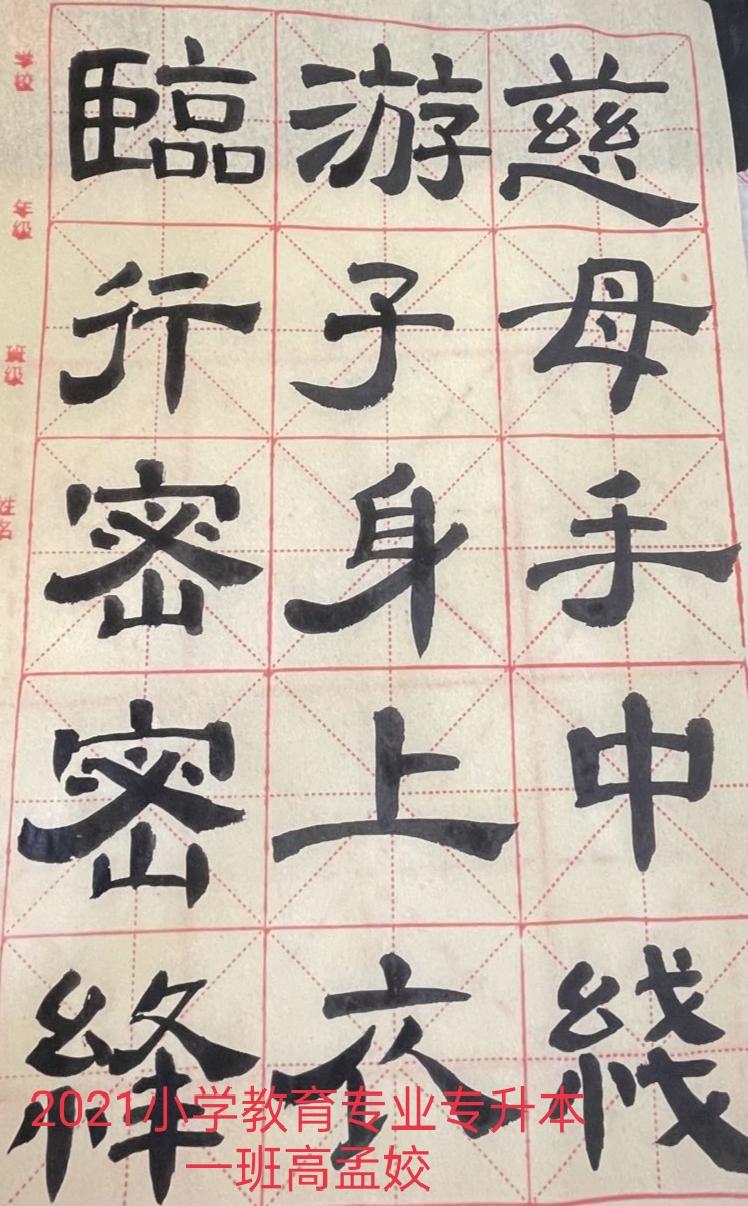 慈母手中綫
游子身上衣
臨行密密縫
学校
年级
班级
姓名
2021小学教育专业专升本
一班高孟姣